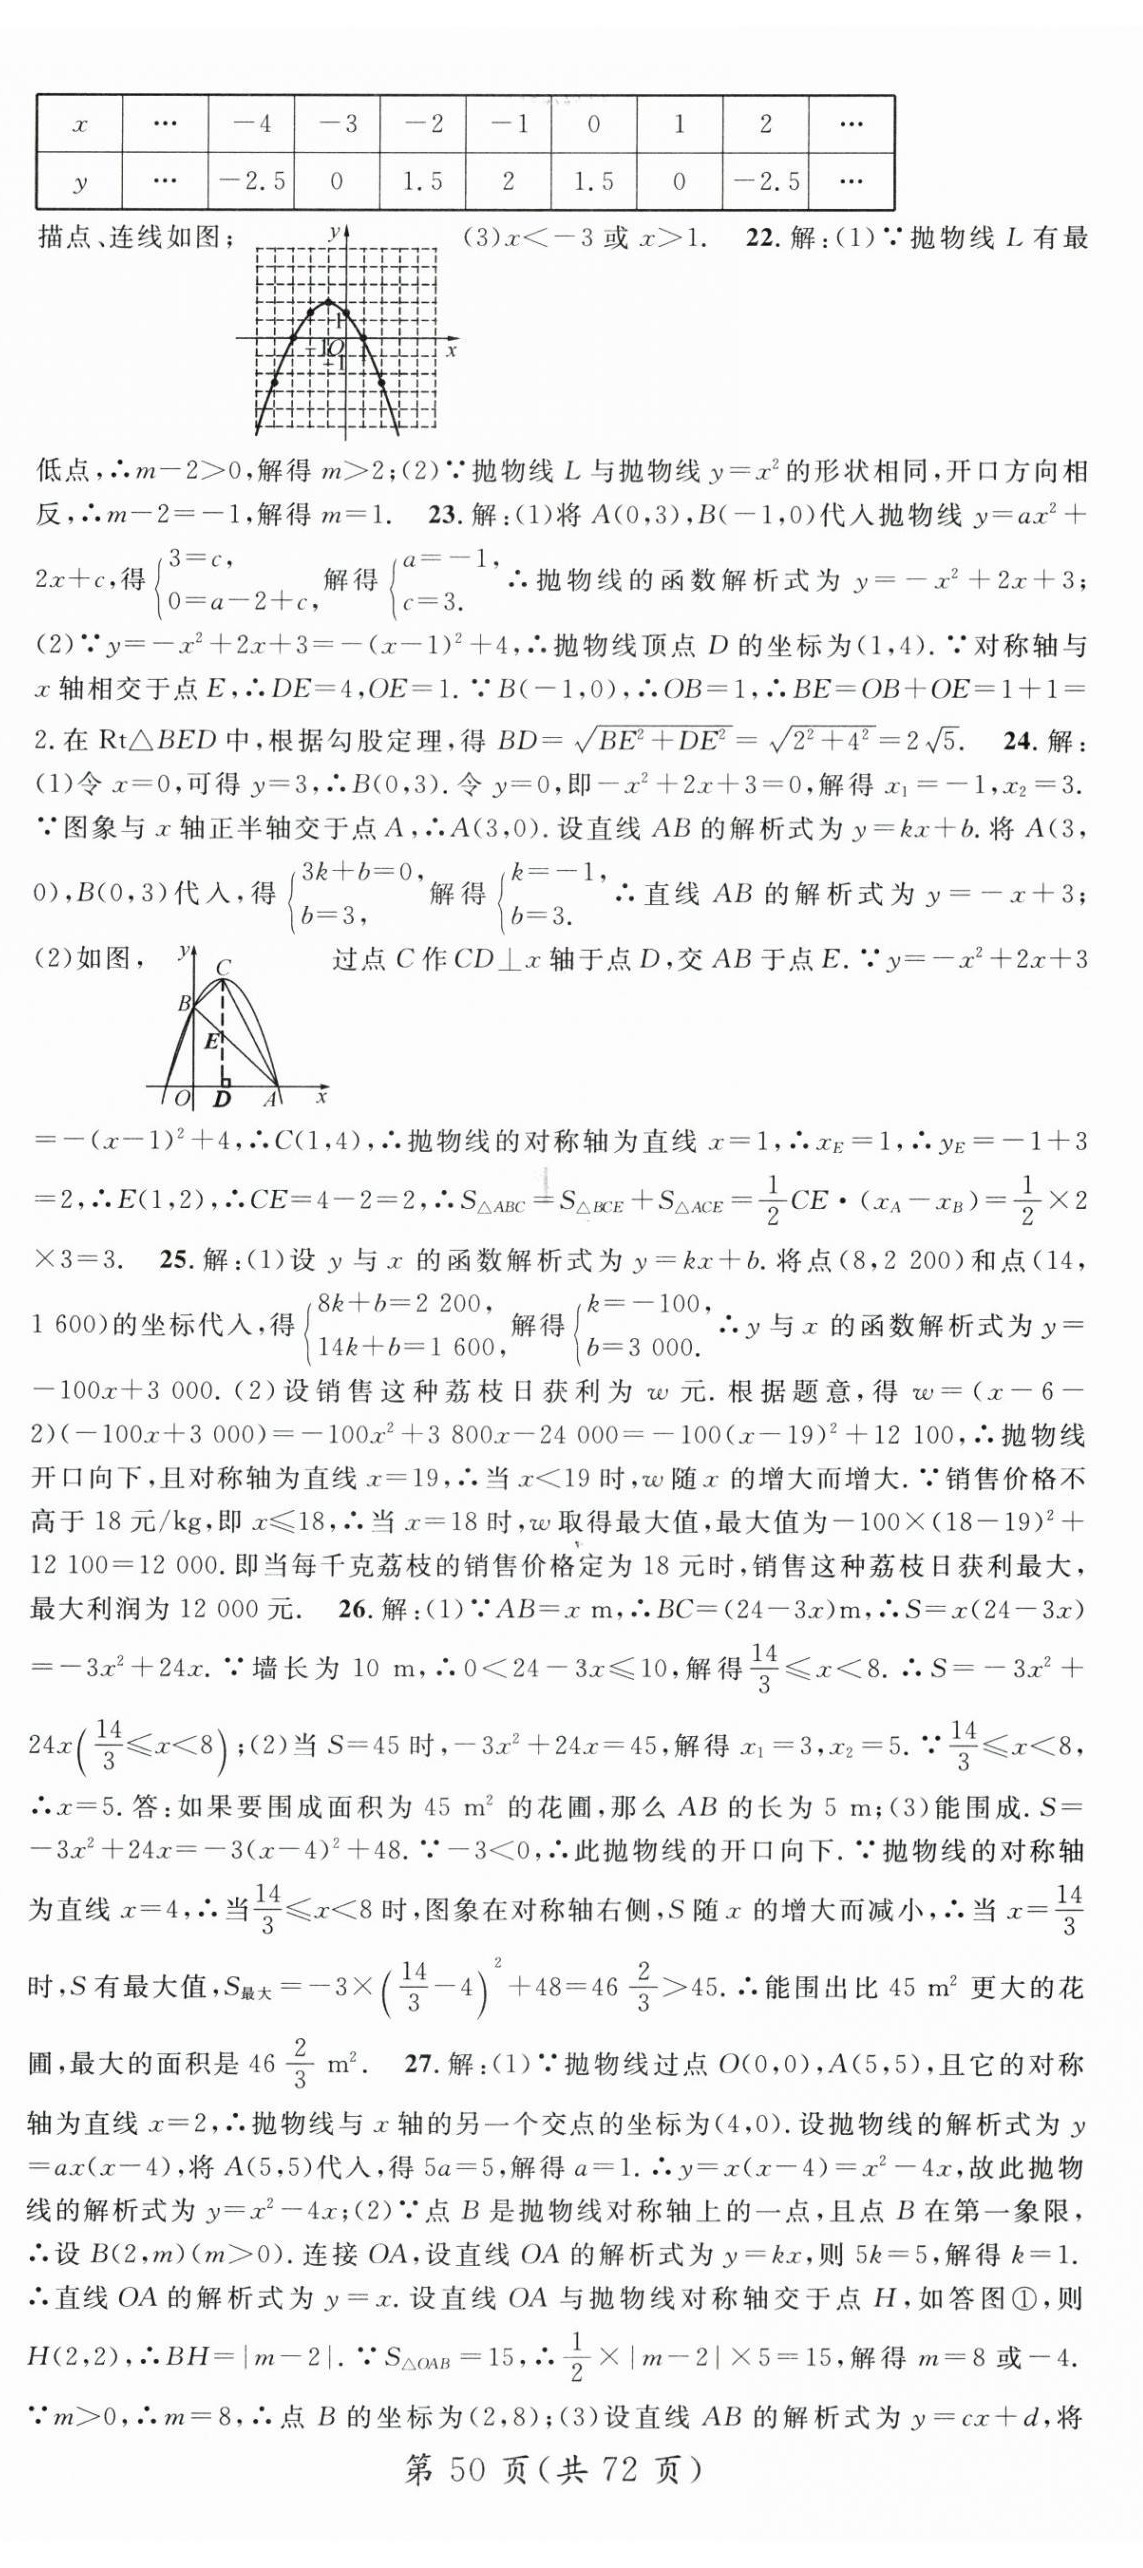 x … －4 －3 －2 －1 0 1 2 …
y … －2.5 0 1.5 2 1.5 0 －2.5 …
描点、连线如图; (3)x＜－3 或 x＞1. 22.解:(1)∵抛物线 L 有最
y
1
－1 O 1 x
－1
低点,∴m－2＞0,解得 m＞2;(2)∵抛物线 L 与抛物线 y＝x² 的形状相同,开口方向相
反,∴m－2＝－1,解得 m＝1. 23.解:(1)将 A(0,3),B(－1,0)代入抛物线 y＝ax²＋
2x＋c,得{3＝c, 0＝a－2＋c, 解得{a＝－1, c＝3. ∴抛物线的函数解析式为 y＝－x²＋2x＋3;
(2)∵y＝－x²＋2x＋3＝－(x－1)²＋4,∴抛物线顶点 D 的坐标为(1,4).∵对称轴与
x 轴相交于点 E,∴DE＝4,OE＝1.∵B(－1,0),∴OB＝1,∴BE＝OB＋OE＝1＋1＝
2.在 Rt△BED 中,根据勾股定理,得 BD＝√(BE²＋DE²)＝√(2²＋4²)＝2√5. 24.解:
(1)令 x＝0,可得 y＝3,∴B(0,3).令 y＝0,即－x²＋2x＋3＝0,解得 x₁＝－1,x₂＝3.
∵图象与 x 轴正半轴交于点 A,∴A(3,0).设直线 AB 的解析式为 y＝kx＋b.将 A(3,
0),B(0,3)代入,得{3k＋b＝0, b＝3, 解得{k＝－1, b＝3. ∴直线 AB 的解析式为 y＝－x＋3;
(2)如图, 过点 C 作 CD⊥x 轴于点 D,交 AB 于点 E.∵y＝－x²＋2x＋3
y
C
B
E
O D A x
＝－(x－1)²＋4,∴C(1,4),∴抛物线的对称轴为直线 x＝1,∴x_E＝1,∴y_E＝－1＋3
＝2,∴E(1,2),∴CE＝4－2＝2,∴S△ABC＝S△BCE＋S△ACE＝1/2 CE·(x_A－x_B)＝1/2×2
×3＝3. 25.解:(1)设 y 与 x 的函数解析式为 y＝kx＋b.将点(8,2 200)和点(14,
1 600)的坐标代入,得{8k＋b＝2 200, 14k＋b＝1 600, 解得{k＝－100, b＝3 000. ∴y 与 x 的函数解析式为 y＝
－100x＋3 000.(2)设销售这种荔枝日获利为 w 元.根据题意,得 w＝(x－6－
2)(－100x＋3 000)＝－100x²＋3 800x－24 000＝－100(x－19)²＋12 100,∴抛物线
开口向下,且对称轴为直线 x＝19,∴当 x＜19 时,w 随 x 的增大而增大.∵销售价格不
高于 18 元/kg,即 x≤18,∴当 x＝18 时,w 取得最大值,最大值为－100×(18－19)²＋
12 100＝12 000.即当每千克荔枝的销售价格定为 18 元时,销售这种荔枝日获利最大,
最大利润为 12 000 元. 26.解:(1)∵AB＝x m,∴BC＝(24－3x)m,∴S＝x(24－3x)
＝－3x²＋24x.∵墙长为 10 m,∴0＜24－3x≤10,解得14/3≤x＜8.∴S＝－3x²＋
24x(14/3≤x＜8);(2)当 S＝45 时,－3x²＋24x＝45,解得 x₁＝3,x₂＝5.∵14/3≤x＜8,
∴x＝5.答:如果要围成面积为 45 m² 的花圃,那么 AB 的长为 5 m;(3)能围成.S＝
－3x²＋24x＝－3(x－4)²＋48.∵－3＜0,∴此抛物线的开口向下.∵抛物线的对称轴
为直线 x＝4,∴当14/3≤x＜8 时,图象在对称轴右侧,S 随 x 的增大而减小,∴当 x＝14/3
时,S 有最大值,S最大＝－3×(14/3－4)²＋48＝46 2/3＞45.∴能围出比 45 m² 更大的花
圃,最大的面积是 46 2/3 m². 27.解:(1)∵抛物线过点 O(0,0),A(5,5),且它的对称
轴为直线 x＝2,∴抛物线与 x 轴的另一个交点的坐标为(4,0).设抛物线的解析式为 y
＝ax(x－4),将 A(5,5)代入,得 5a＝5,解得 a＝1.∴y＝x(x－4)＝x²－4x,故此抛物
线的解析式为 y＝x²－4x;(2)∵点 B 是抛物线对称轴上的一点,且点 B 在第一象限,
∴设 B(2,m)(m＞0).连接 OA,设直线 OA 的解析式为 y＝kx,则 5k＝5,解得 k＝1.
∴直线 OA 的解析式为 y＝x.设直线 OA 与抛物线对称轴交于点 H,如答图①,则
H(2,2),∴BH＝|m－2|.∵S△OAB＝15,∴1/2×|m－2|×5＝15,解得 m＝8 或－4.
∵m＞0,∴m＝8,∴点 B 的坐标为(2,8);(3)设直线 AB 的解析式为 y＝cx＋d,将
第 50 页(共 72 页)